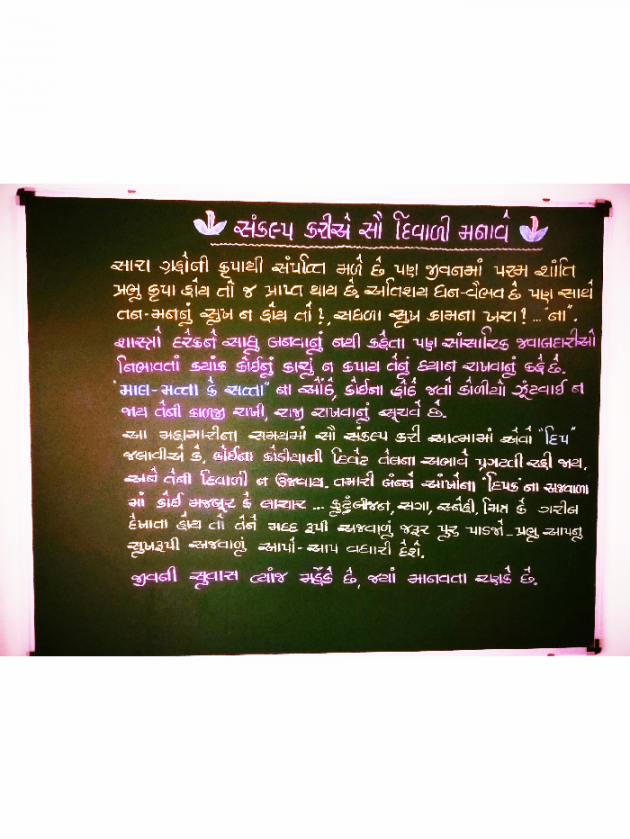 સંકલ્પ કરીએ સૌ દિવાળી મનાવે
સારા ગ્રહોની કૃપાથી સંપત્તિ મળે છે પણ જીવનમાં પરમ શાંતિ
પ્રભુ કૃપા હોય તો જ પ્રાપ્ત થાય છે. અતિશય ધન-વૈભવ છે પણ સાથે
તન-મનનું સુખ ન હોય તો!, સઘળા સુખ કામના ખરા! ... "ના".
શાસ્ત્રો દરેકને સાધુ બનવાનું નથી કહેતા પણ સાંસારિક જવાબદારીઓ
નિભાવતાં ક્યાંક કોઈનું કાચું ન કપાય તેનું ધ્યાન રાખવાનું કહે છે.
"માલ-મત્તા કે સત્તા" ના ઓઠે, કોઈના હોઠે જતો કોળીયો ઝૂંટવાઈ ન
જાય તેની કાળજી રાખી, રાજી રાખવાનું સૂચવે છે.
આ મહામારીના સમયમાં સૌ સંકલ્પ કરી આત્મામાં એવો "દિપ"
જલાવીએ કે, કોઈના કોડીયાની દિવેટ તેલના અભાવે પ્રગટતી રહી જાય,
અને તેની દિવાળી ન ઉજવાય. તમારી બંન્ને આંખોના 'દિપક' ના અજવાળા
માં કોઈ મજબુર કે લાચાર ... કુટુંબીજન, સગા, સ્નેહી, મિત્ર કે ગરીબ
દેખાતા હોય તો તેને મદદ રૂપી અજવાળું જરૂર પુરુ પાડજો - પ્રભુ આપનુ
સુખરૂપી અજવાળું આપો-આપ વધારી દેશે.
જીવની સુવાસ ત્યાંજ મહેંકે છે, જ્યાં માનવતા રણકે છે.